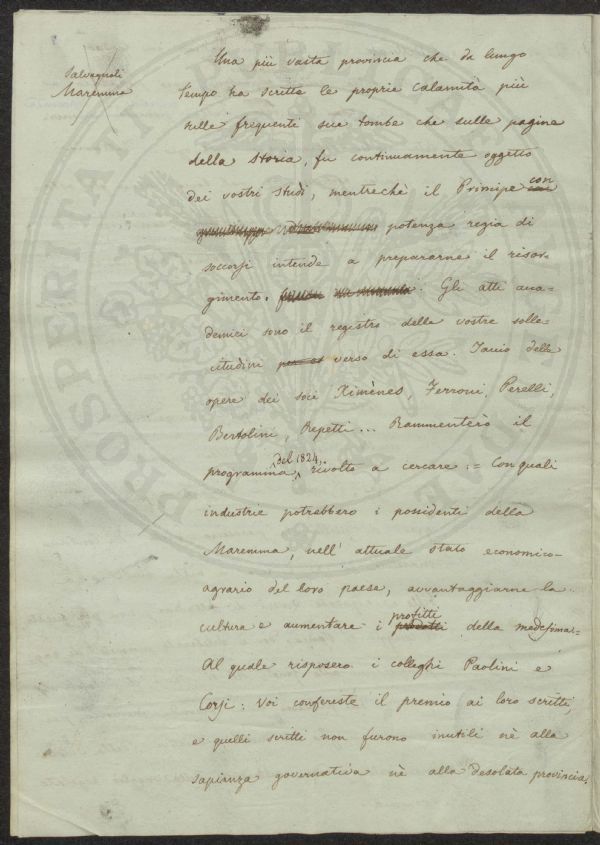 Salvagnoli
Maremma
Una più vasta provincia che da lungo
tempo ha scritte le proprie calamità più
sulle frequenti sue tombe che sulle pagine
della storia, fu continuamente oggetto
dei vostri studi, mentrechè il Principe con
potenza regia di
soccorsi intende a prepararne il risor-
gimento. Gli atti acca-
demici sono il registro delle vostre solle-
citudini verso di essa. Taccio delle
opere dei soci Ximènes, Ferroni, Perelli,
Bertolini, Repetti... Rammenterò il
programma del 1824, rivolto a cercare := Con quali
industrie potrebbero i possidenti della
Maremma, nell' attuale stato economico-
agrario del loro paese, avvantaggiarne la
cultura e aumentare i profitti della medesima=
Al quale risposero i colleghi Paolini e
Corsi: Voi conferiste il premio ai loro scritti,
e quelli scritti non furono inutili nè alla
sapienza governativa nè alla desolata provincia.
PROSPERITATI PUBLICAE